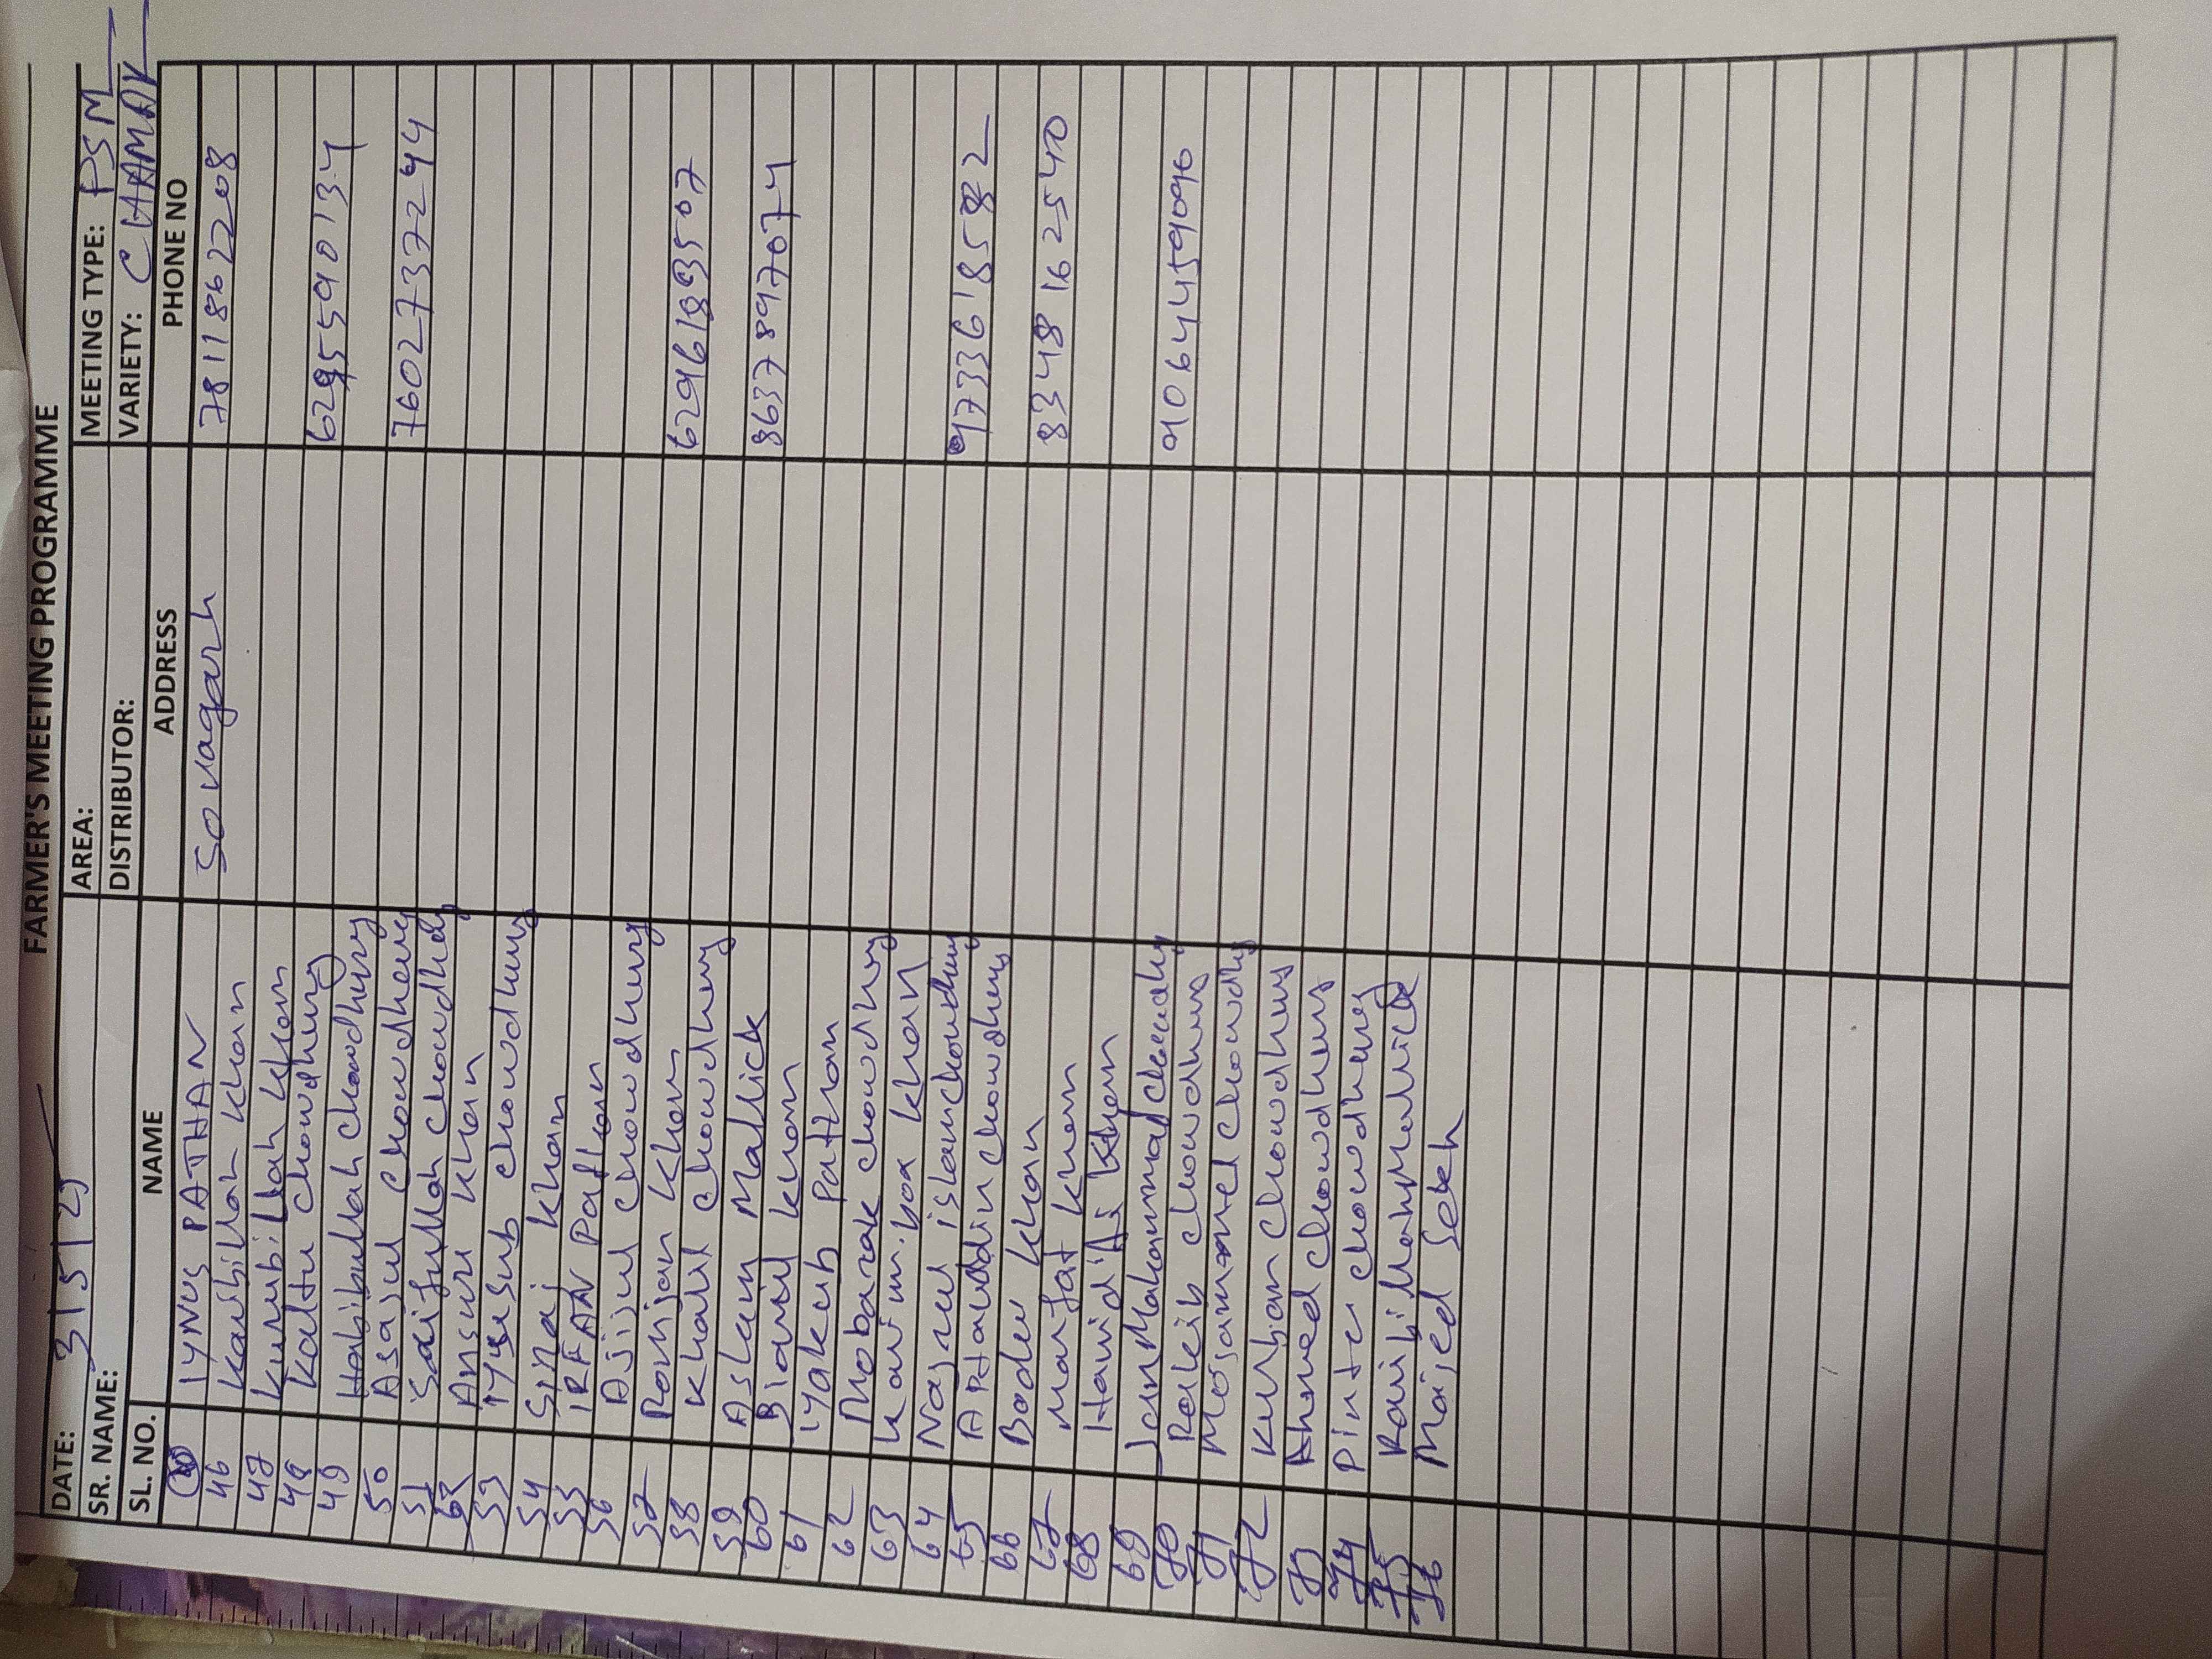 FARMER'S MEETING PROGRAMME
DATE: 3/5/25 AREA: MEETING TYPE: PSM
SR. NAME: DISTRIBUTOR: VARIETY: CHAMAK
SL. NO. NAME ADDRESS PHONE NO
IYNUS PATHAN Sovagarh 7811862208
46 Karibillah Khan
47 Kurubillah Khan
48 Kaltu chowdhury 6295590134
49 Habibullah chowdhury
50 Asajul chowdhury 7602737244
51 Saifullah chowdhedy
52 Ansuri Khan
53 iyusub chowdhury
54 Siraj Khan
55 IRFAN Pathan
56 Ajijul chowdhury
57 Ramjan Khan 6296189507
58 Khalil chowdhury
59 Aslam Mallick 8637897074
60 Bianil Khan
61 iyakub Pathan
62 Mobarak chowdhury
63 Karim.box khan
64 Najrul islam chowdhury 9733618582
65 Aftauddin chowdhury
66 Badu khan 8348162540
67 Marfat Khan
68 Hamid Ali Khan
69 Jan Mahammad chowdhy 9064459096
70 Rakib chowdhury
71 Mosammel chowdhy
72 Kurban chowdhury
73 Ahmed chowdhury
74 Pintu chowdhury
75 Rabi Mallick
76 Majed Sekh